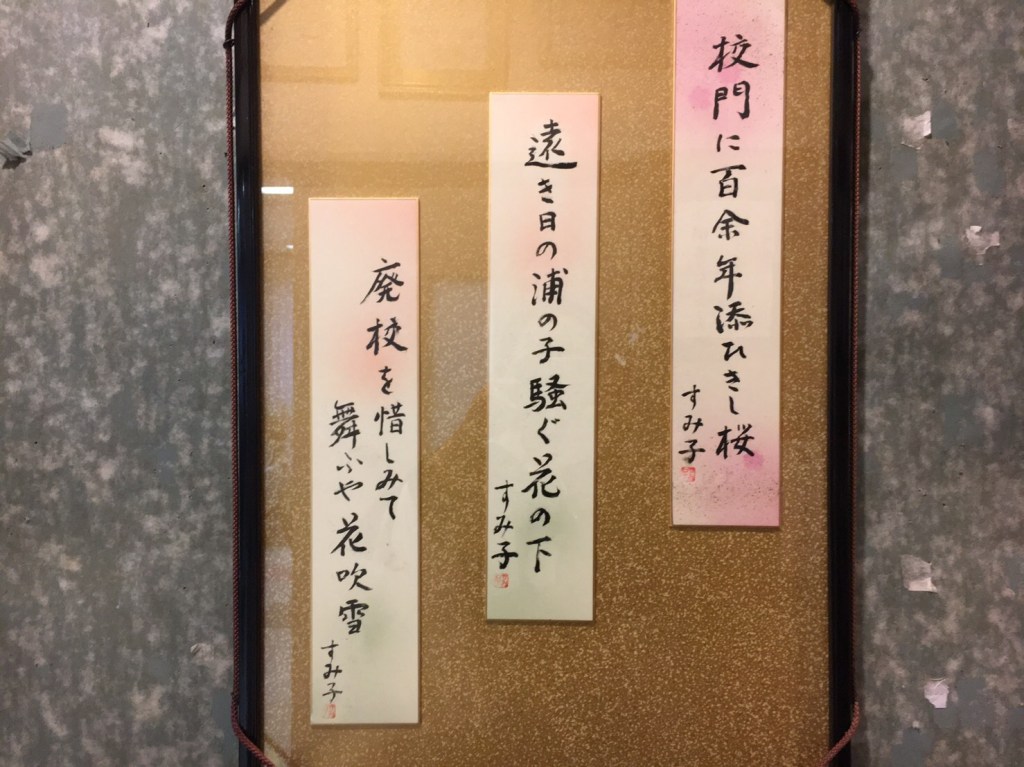 校門に百余年添ひきし桜
すみ子
遠き日の浦の子騒ぐ花の下
すみ子
廃校を惜しみて
舞ふや花吹雪
すみ子